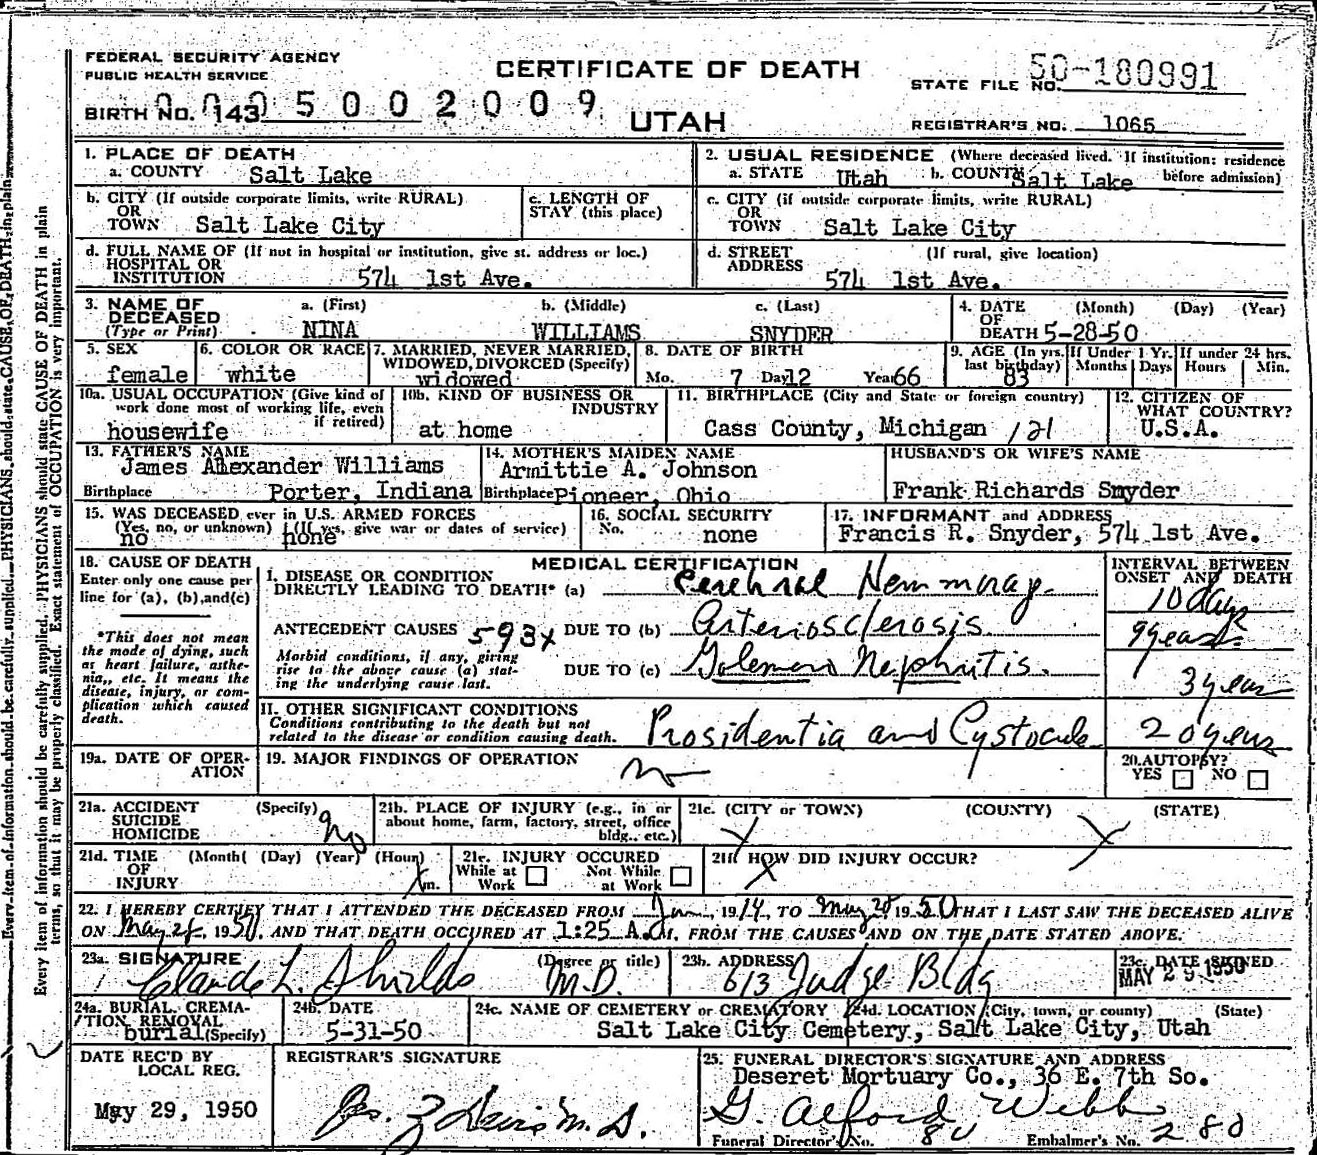 FEDERAL SECURITY AGENCY
PUBLIC HEALTH SERVICE
CERTIFICATE OF DEATH
STATE FILE NO. 50-180991
BIRTH NO. 143
0005002009
UTAH
REGISTRAR'S NO. 1065
1. PLACE OF DEATH
a. COUNTY Salt Lake
2. USUAL RESIDENCE (Where deceased lived. If institution: residence before admission)
a. STATE Utah b. COUNTY Salt Lake
b. CITY (If outside corporate limits, write RURAL)
OR
TOWN Salt Lake City
c. LENGTH OF
STAY (this place)
c. CITY (if outside corporate limits, write RURAL)
OR
TOWN Salt Lake City
d. FULL NAME OF (If not in hospital or institution, give st. address or loc.)
HOSPITAL OR
INSTITUTION 574 1st Ave.
d. STREET (If rural, give location)
ADDRESS 574 1st Ave.
3. NAME OF
DECEASED
(Type or Print)
a. (First) b. (Middle) c. (Last)
NINA WILLIAMS SNYDER
4. DATE (Month) (Day) (Year)
OF
DEATH 5-28-50
5. SEX
female
6. COLOR OR RACE
white
7. MARRIED, NEVER MARRIED,
WIDOWED, DIVORCED (Specify)
widowed
8. DATE OF BIRTH
Mo. 7 Day 12 Year 66
9. AGE (In yrs. last birthday)
83
If Under 1 Yr.
Months Days
If under 24 hrs.
Hours Min.
10a. USUAL OCCUPATION (Give kind of
work done most of working life, even
if retired)
housewife
10b. KIND OF BUSINESS OR
INDUSTRY
at home
11. BIRTHPLACE (City and State or foreign country)
Cass County, Michigan 121
12. CITIZEN OF
WHAT COUNTRY?
U.S.A.
13. FATHER'S NAME
James Alexander Williams
Birthplace Porter, Indiana
14. MOTHER'S MAIDEN NAME
Armittie A. Johnson
Birthplace Pioneer, Ohio
HUSBAND'S OR WIFE'S NAME
Frank Richards Snyder
15. WAS DECEASED ever in U.S. ARMED FORCES
(Yes, no, or unknown) (If yes, give war or dates of service)
no none
16. SOCIAL SECURITY
No. none
17. INFORMANT and ADDRESS
Francis R. Snyder, 574 1st Ave.
18. CAUSE OF DEATH
Enter only one cause per
line for (a), (b), and (c)
*This does not mean
the mode of dying, such
as heart failure, asthe-
nia, etc. It means the
disease, injury, or com-
plication which caused
death.
MEDICAL CERTIFICATION
INTERVAL BETWEEN
ONSET AND DEATH
I. DISEASE OR CONDITION
DIRECTLY LEADING TO DEATH* (a) Cerebral Hemmorag.
10 days
ANTECEDENT CAUSES 593x DUE TO (b) Arteriosclerosis
9 years
Morbid conditions, if any, giving
rise to the above cause (a) stat-
ing the underlying cause last.
DUE TO (c) Golemero Nephritis.
3 years
II. OTHER SIGNIFICANT CONDITIONS
Conditions contributing to the death but not
related to the disease or condition causing death.
Prosidentia and Cystocele
20 years
19a. DATE OF OPER-
ATION
19. MAJOR FINDINGS OF OPERATION
no
20. AUTOPSY?
YES NO
21a. ACCIDENT (Specify)
SUICIDE
HOMICIDE
No
21b. PLACE OF INJURY (e.g., in or
about home, farm, factory, street, office
bldg., etc.)
21c. (CITY or TOWN) (COUNTY) (STATE)
X X
21d. TIME (Month) (Day) (Year) (Hour)
OF
INJURY X m.
21e. INJURY OCCURED
While at Not While
Work at Work
21f. HOW DID INJURY OCCUR?
X
22. I HEREBY CERTIFY THAT I ATTENDED THE DECEASED FROM Jan, 1914, TO May 28 1950 THAT I LAST SAW THE DECEASED ALIVE
ON May 28, 1950, AND THAT DEATH OCCURED AT 1:25 A.M., FROM THE CAUSES AND ON THE DATE STATED ABOVE.
23a. SIGNATURE (Degree or title)
Claude L. Shields M.D.
23b. ADDRESS
613 Judge Bldg
23c. DATE SIGNED
MAY 29 1950
24a. BURIAL, CREMA-
TION REMOVAL
burial (Specify)
24b. DATE
5-31-50
24c. NAME OF CEMETERY or CREMATORY 24d. LOCATION (City, town, or county) (State)
Salt Lake City Cemetery, Salt Lake City, Utah
DATE REC'D BY
LOCAL REG.
May 29, 1950
REGISTRAR'S SIGNATURE
25. FUNERAL DIRECTOR'S SIGNATURE AND ADDRESS
Deseret Mortuary Co., 36 E. 7th So.
G. Alford Webb
Funeral Director's No. 80 Embalmer's No. 280
Every item of information should be carefully supplied. PHYSICIANS should state CAUSE OF DEATH in plain
Every item of information should be carefully supplied. PHYSICIANS should state CAUSE OF DEATH in plain
terms, so that it may be properly classified. Exact statement of OCCUPATION is very important.